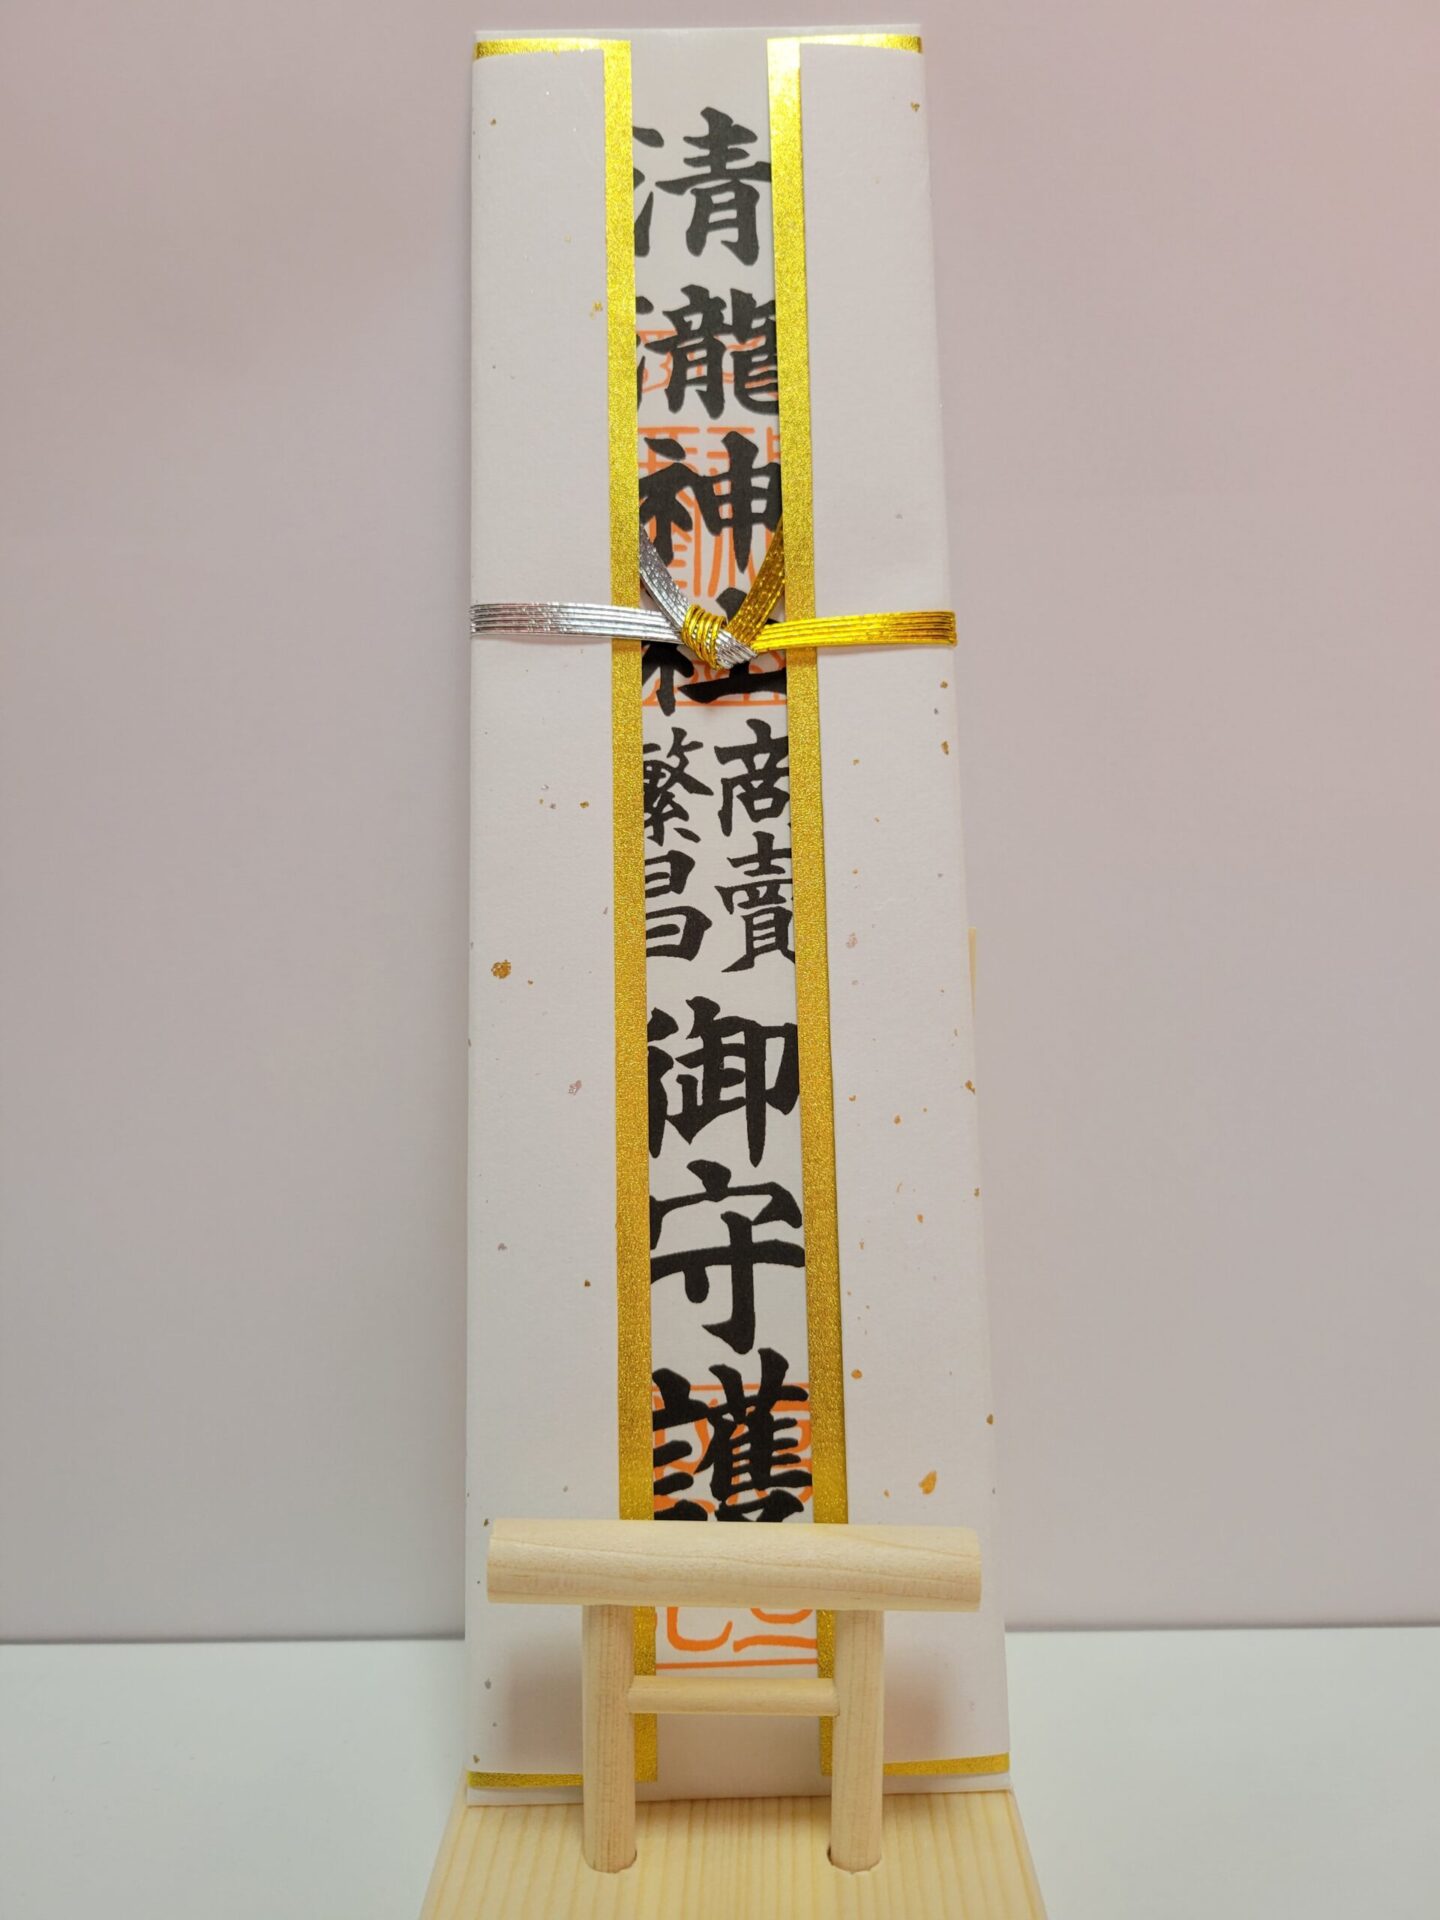 清瀧神社
商賣
繁昌
御守護